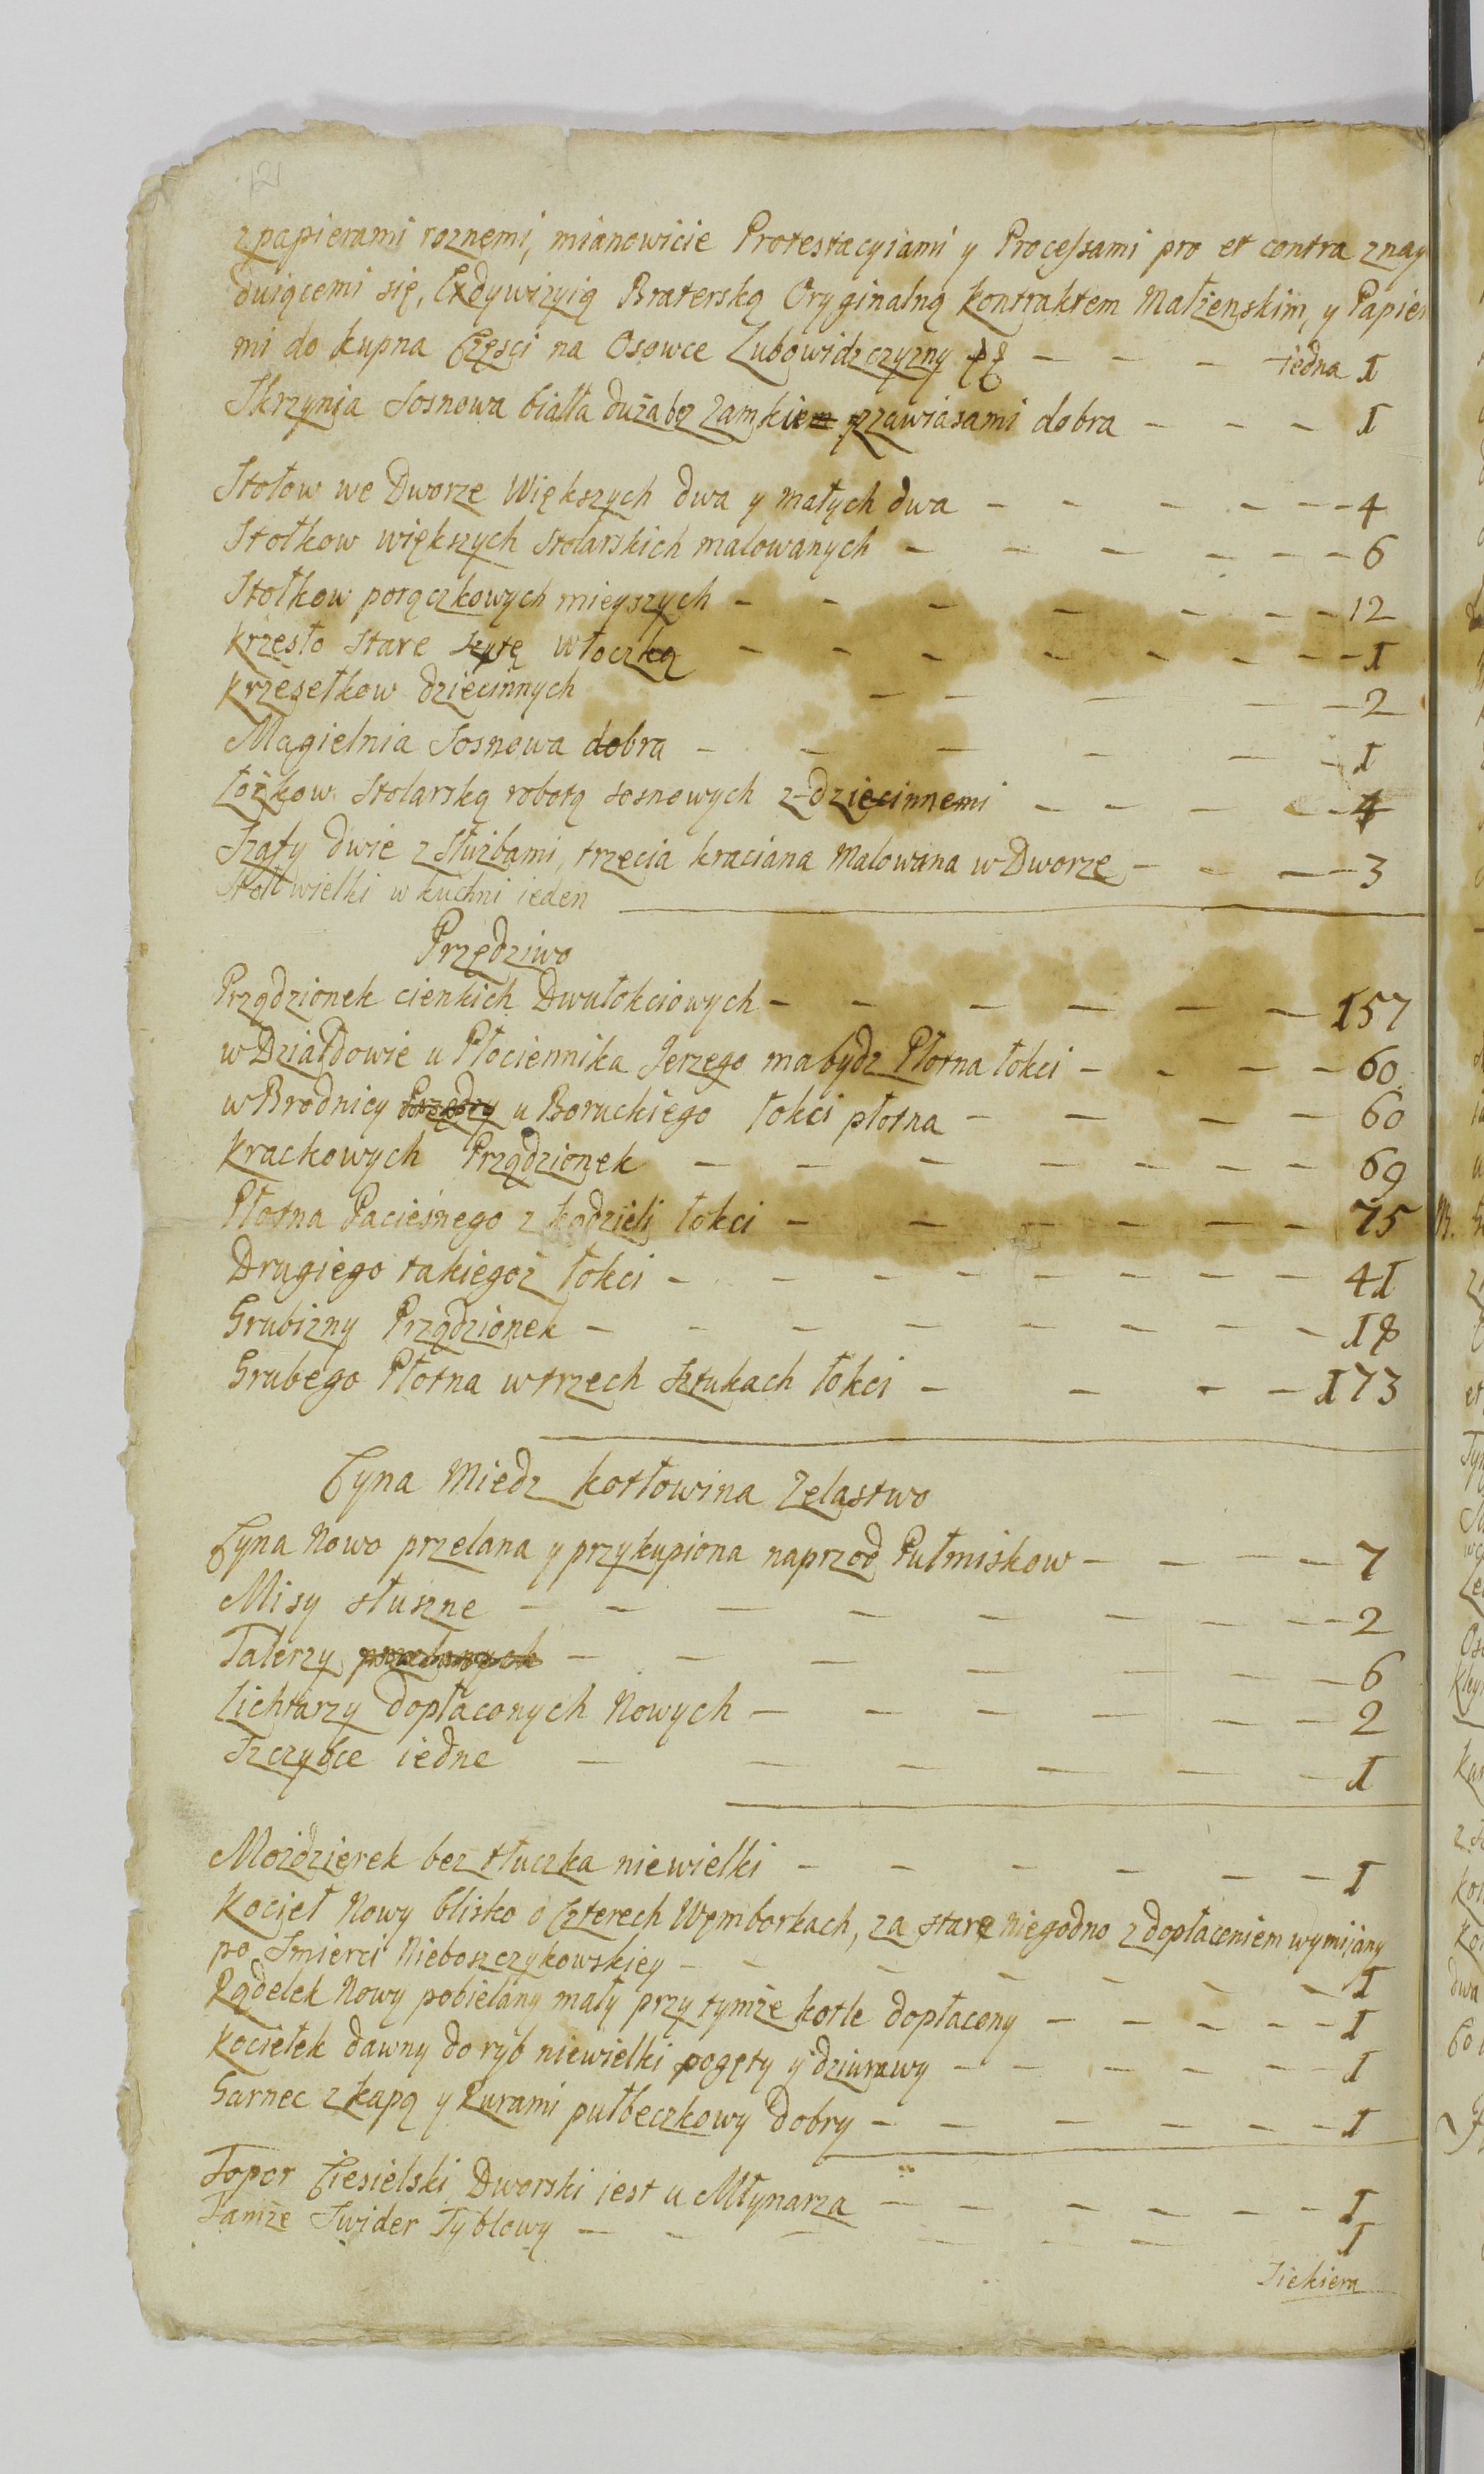 121
z papierami roznemi, mianowicie Protestacyiami y Processami pro et contra znay
duiącemi się, Exdywizyią Braterską Oryginalną kontraktem Małżenskim, y Papier
mi do kupna Częsci na Osowce Lubowidzczyzny – – – iedna 1
Skrzynia Sosnowa biała duża bez Zamkiem z zawiasami dobra – – – 1
Stołow we Dworze Większych dwa y małych dwa – – – – – 4
Stołkow większych Stolarskich malowanych – – – – – – 6
Stołkow porączkowych mieyszych – – – – – – 12
krzesło stare szytę włoczką – – – – – – – 1
krzesełkow dziecinnych – – – – – 2
Magielnia Sosnowa dobra – – – – – – 1
Łożkow Stolarską robotą sosnowych z dziecinnemi – – – – 4
Szafy dwie z Służbami, trzecia kraciana Malowana w Dworze – – – 3
Stoł wielki w kuchni ieden
Przędziwo
Prządzionek cienkich Dwułokciowych – – – – – – 157
w Działdowie u Płociennika Jerzego ma bydz Płotna łokci – – – – 60
w Brodnicy u Boruckiego łokci płotna – – – – 60
krackowych Prządzionek – – – – – – – 69
Płotna Pacieśnego z kądzieli łokci – – – – – – 75
Drugiego takiegoż łokci – – – – – – – – 41
Grubizny Prządzionek – – – – – – – – 18
Grubego Płotna w trzech sztukach łokci – – – – 173
Cyna Miedz kotłowina Zelastwo
Cyna Nowo przelana y przykupiona naprzod Pułmiskow – – – – 7
Misy słuszne – – – – – – – – 2
Talerzy – – – – – – – 6
Lichtarzy dopłaconych Nowych – – – – – – 2
Szczybce iedne – – – – – – 1
Mozdzierek bez tłuczka niewielki – – – – – – 1
Kocieł Nowy blisko o Czterech Węmborkach, za stare niegodno z dopłaceniem wymijany
po Smierci Nieboszczykowskiey – – – – – – – 1
Rądelek Nowy pobielany mały przy tymże kotle dopłacony – – – – – 1
Kociełek dawny do ryb niewielki pogęty y dziurawy – – – – – 1
Garnec z kapą y Rurami pułbeczkowy Dobry – – – – – – 1
Topor Ciesielski Dworski iest u Młynarza – – – – – – 1
Tamże Swider Tyblowy – – – – – – 1
Siekiera